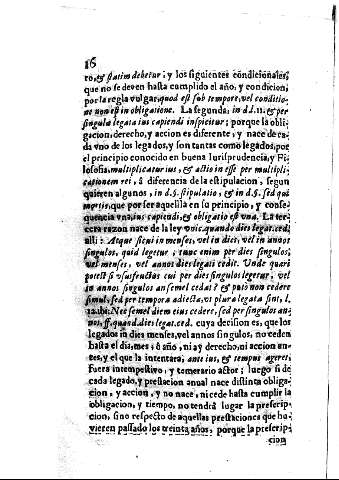 16
ro, & statim debetur: y los siguientes condicionales,
que no se deven hasta cumplido el año, y condicion,
por la regla vulgar, quod est sub tempore, vel conditio-
ne non est in obligatione. La segunda, in d.l. 11. & per
singula legata ius capiendi inspicitur; porque la obli-
gacion, derecho, y accion es diferente, y nace de ca-
da vno de los legados, y son tantas como legados, por
el principio conocido en buena Iurisprudencia, y Fi-
losofia, multiplicatur ius, & actio in esse per multipli-
cationem rei, à diferencia de la estipulacion, segun
quieren algunos, in d. §. stipulatio, & in d. §. sed quod
mortis, que por ser aquella en su principio, y conse-
quencia vna, ius capiendi, & obligatio est vna. La ter-
cera razon nace de la ley quando dies legat. ced.
alli: Atque sicuti in menses, vel in dies, vel in annos
singulos, quid legetur; tunc enim per dies singulos,
vel menses, vel annos dies legati cedit. Vnde quæri
potest si vsusfructus cui per dies singulos legetur, vel
in annos singulos an semel cedat? & puto non cedere
simul, sed per tempora adiecta, vt plura legata sint, l.
12. ibi: Nec semel diem eius cedere, sed per singulos an-
nos, ff. quand. dies legat. ced. cuya decision es, que los
legados in dies menses, vel annos singulos, no ceden
hasta el dia, mes, ò año, ni ay derecho, ni accion an-
tes, y el que la intentàra, ante ius, & tempus ageret,
fuera intempestivo, y temerario actor; luego si de
cada legado, y prestacion anual nace distinta obliga-
cion, y accion, y no nace, ni cede hasta cumplir la
obligacion, y tiempo, no tendrà lugar la prescrip-
cion, sino respecto de aquellas prestaciones que hu-
vieren passado los treinta años, porque la prescrip-
cion